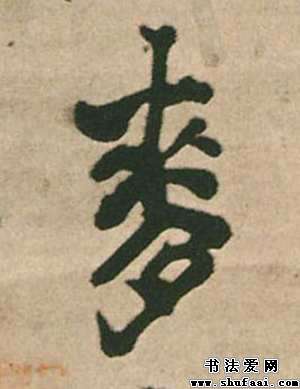 麥
书法爱网
www.shufaai.com